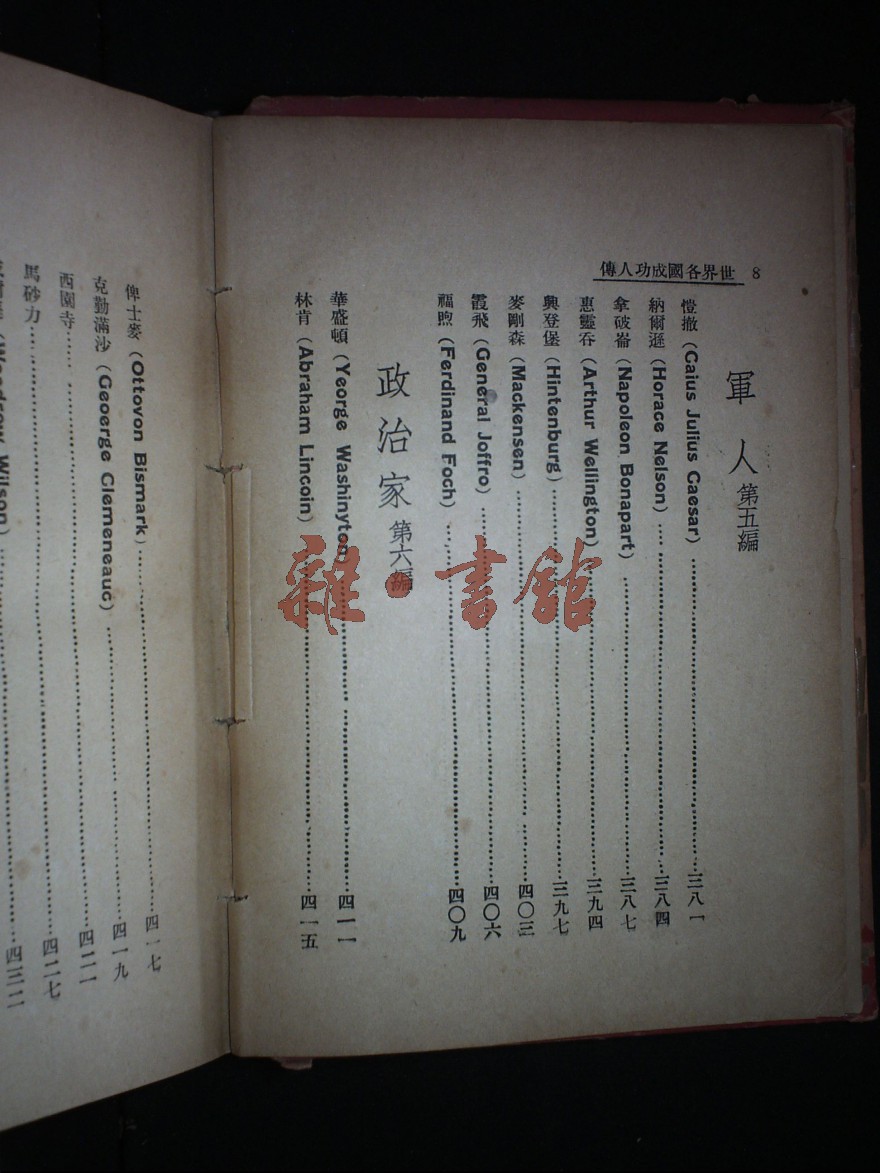 8 世界各國成功人傳
軍人 第五編
愷撤 (Caius Julius Caesar) 三八一
納爾遜 (Horace Nelson) 三八四
拿破崙 (Napoleon Bonapart) 三八七
惠靈吞 (Arthur Wellington) 三九四
興登堡 (Hintenburg) 三九七
麥剛森 (Mackensen) 四〇三
霞飛 (General Joffro) 四〇六
福煦 (Ferdinand Foch) 四〇九
政治家 第六編
華盛頓 (Yeorge Washinyton) 四一一
林肯 (Abraham Lincoin) 四一五
俾士麥 (Ottovon Bismark) 四一七
克勒滿沙 (Geoerge Clemeneauc) 四一九
西園寺 四二一
馬砂力 四二七
(Woodrow Wilson) 四三二
雜·書館